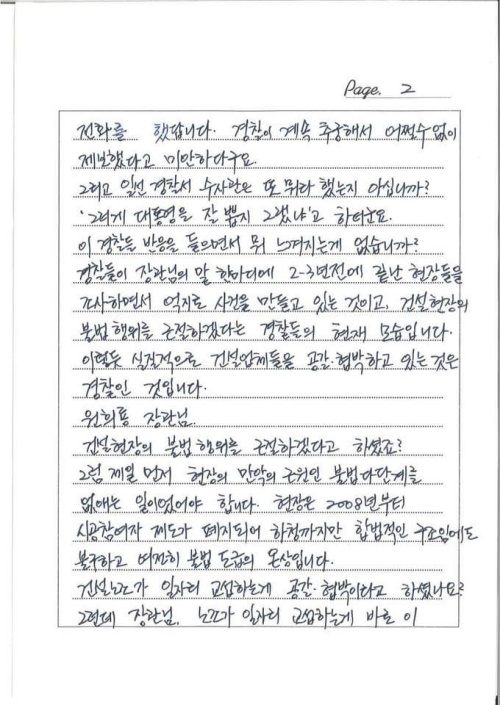 Page. 2
전화를 했답니다. 경찰이 계속 추궁해서 어쩔수없이
제보했다고 미안하다구요.
그리고 일선 경찰서 수사관은 또 뭐라 했는지 아십니까?
'그러게 대통령을 잘 뽑지 그랬냐'고 하더군요.
이 경찰들 반응을 들으면서 뭐 느껴지는게 없습니까?
경찰들이 장관님의 말 한마디에 2-3년전에 끝난 현장들을
수사하면서 억지로 사건을 만들고 있는 것이고, 건설현장의
불법 행위를 근절하겠다는 경찰들의 현재 모습입니다.
이렇듯 실질적으로 건설업체들을 공갈·협박하고 있는 것은
경찰인 것입니다.
원희룡 장관님.
건설현장의 불법행위를 근절하겠다고 하셨죠?
그럼 제일 먼저 현장의 만악의 근원인 불법다단계를
없애는 일이었어야 합니다. 현장은 2008년부터
시공참여자 제도가 폐지되어 하청까지만 합법적인 구조임에도
불구하고 여전히 불법 도급의 온상입니다.
건설노조가 일자리 교섭하는게 공갈·협박이라고 하셨나요?
그런데 장관님. 노조가 일자리 교섭하는게 바로 이